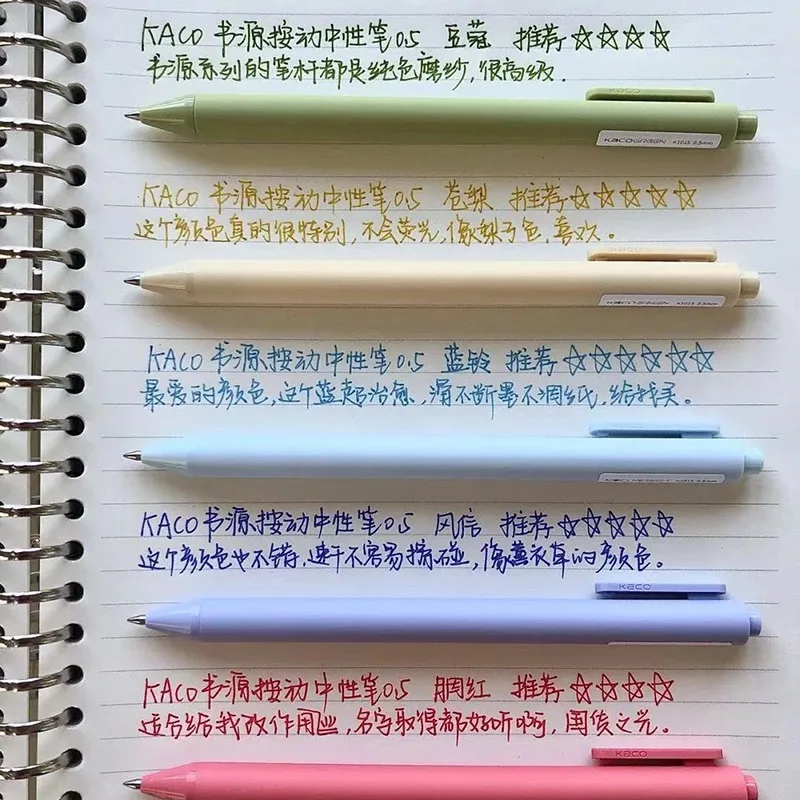 KACO 书源按动中性笔0.5 豆蔻 推荐☆☆☆☆
书源系列的笔杆都是纯色磨纱,很高级.
KACO
KACOGREEN K1015 0.5mm
KACO 书源按动中性笔0.5 苍梨 推荐☆☆☆☆☆
这个颜色真的很特别,不会荧光,像梨子色,喜欢。
KACOGREEN K1015 0.5mm
KACO 书源按动中性笔0.5 蓝铃 推荐☆☆☆☆☆☆
最爱的颜色,这个蓝超治愈,滑不断墨不洇纸,给我买。
KACO 书源按动中性笔0.5 风信 推荐☆☆☆☆☆
这个颜色也不错,速干不容易擦碰,像薰衣草的颜色。
KACO
KACO 书源按动中性笔0.5 胭红 推荐☆☆☆☆
适合给我改作用业,名字取得都好听啊,国货之光。
KACO